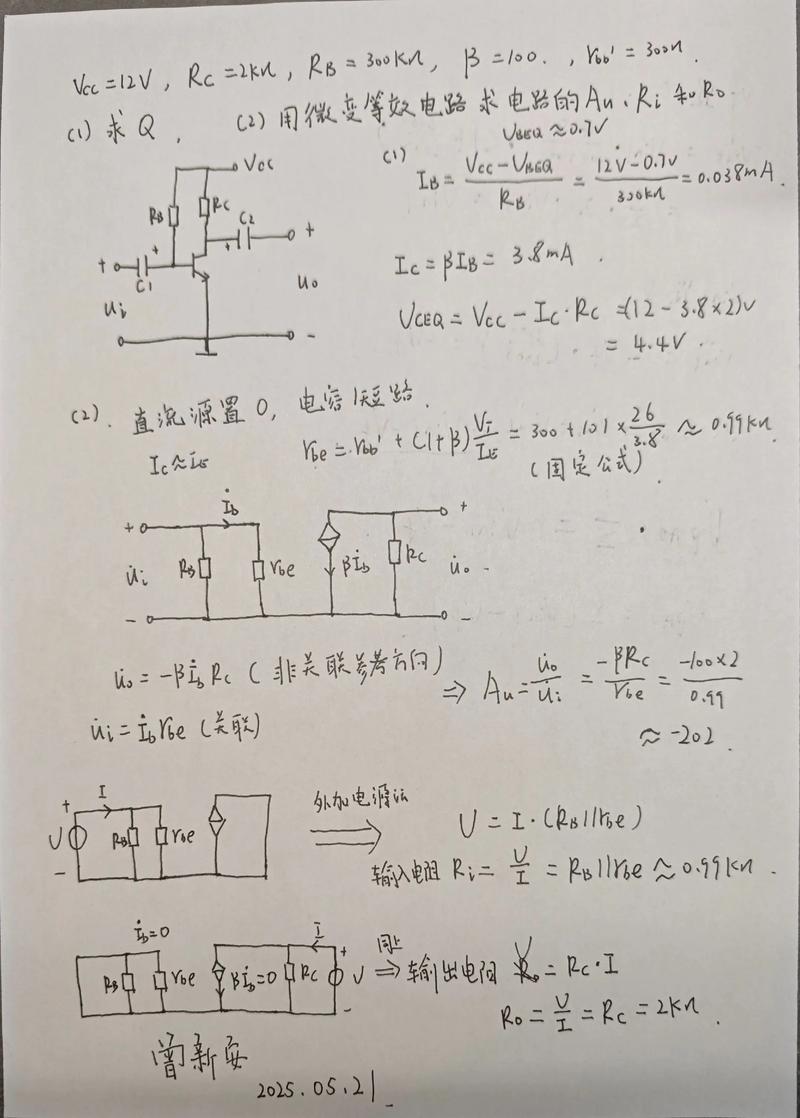 Vcc=12V, Rc=2kΩ, RB=300kΩ, β=100., rbb'=300Ω.
(1) 求Q, (2) 用微变等效电路求电路的Au、Ri和Ro
UBEQ≈0.7V
(1) IB = (Vcc-UBEQ)/RB = (12V-0.7V)/300kΩ = 0.038mA.
Vcc
RB Rc C2 + +
+ + C1
ui uo
- -
Ic=βIB=3.8mA.
UCEQ=Vcc-Ic·Rc=(12-3.8×2)V
=4.4V.
(2). 直流源置0, 电容短路.
Ic≈IE
rbe=rbb'+(1+β)VT/IE=300+101×26/3.8≈0.99kΩ
(固定公式).
İb
+ +
u̇i RB rbe βİb Rc u̇o -
- -
u̇o=-βİbRc (非关联参考方向)
u̇i=İbrbe (关联)
⇒ Au=u̇o/u̇i=-βRc/rbe=-100×2/0.99
≈-202.
+ I
U RB rbe
-
外加电源法
U=I·(RB//rbe)
输入电阻Ri=U/I=RB//rbe≈0.99kΩ.
İb=0 I +
RB rbe βİb=0 Rc U
-
同上
⇒输出电阻 U=Rc·I
Ro=U/I=Rc=2kΩ.
曾新安
2025.05.21